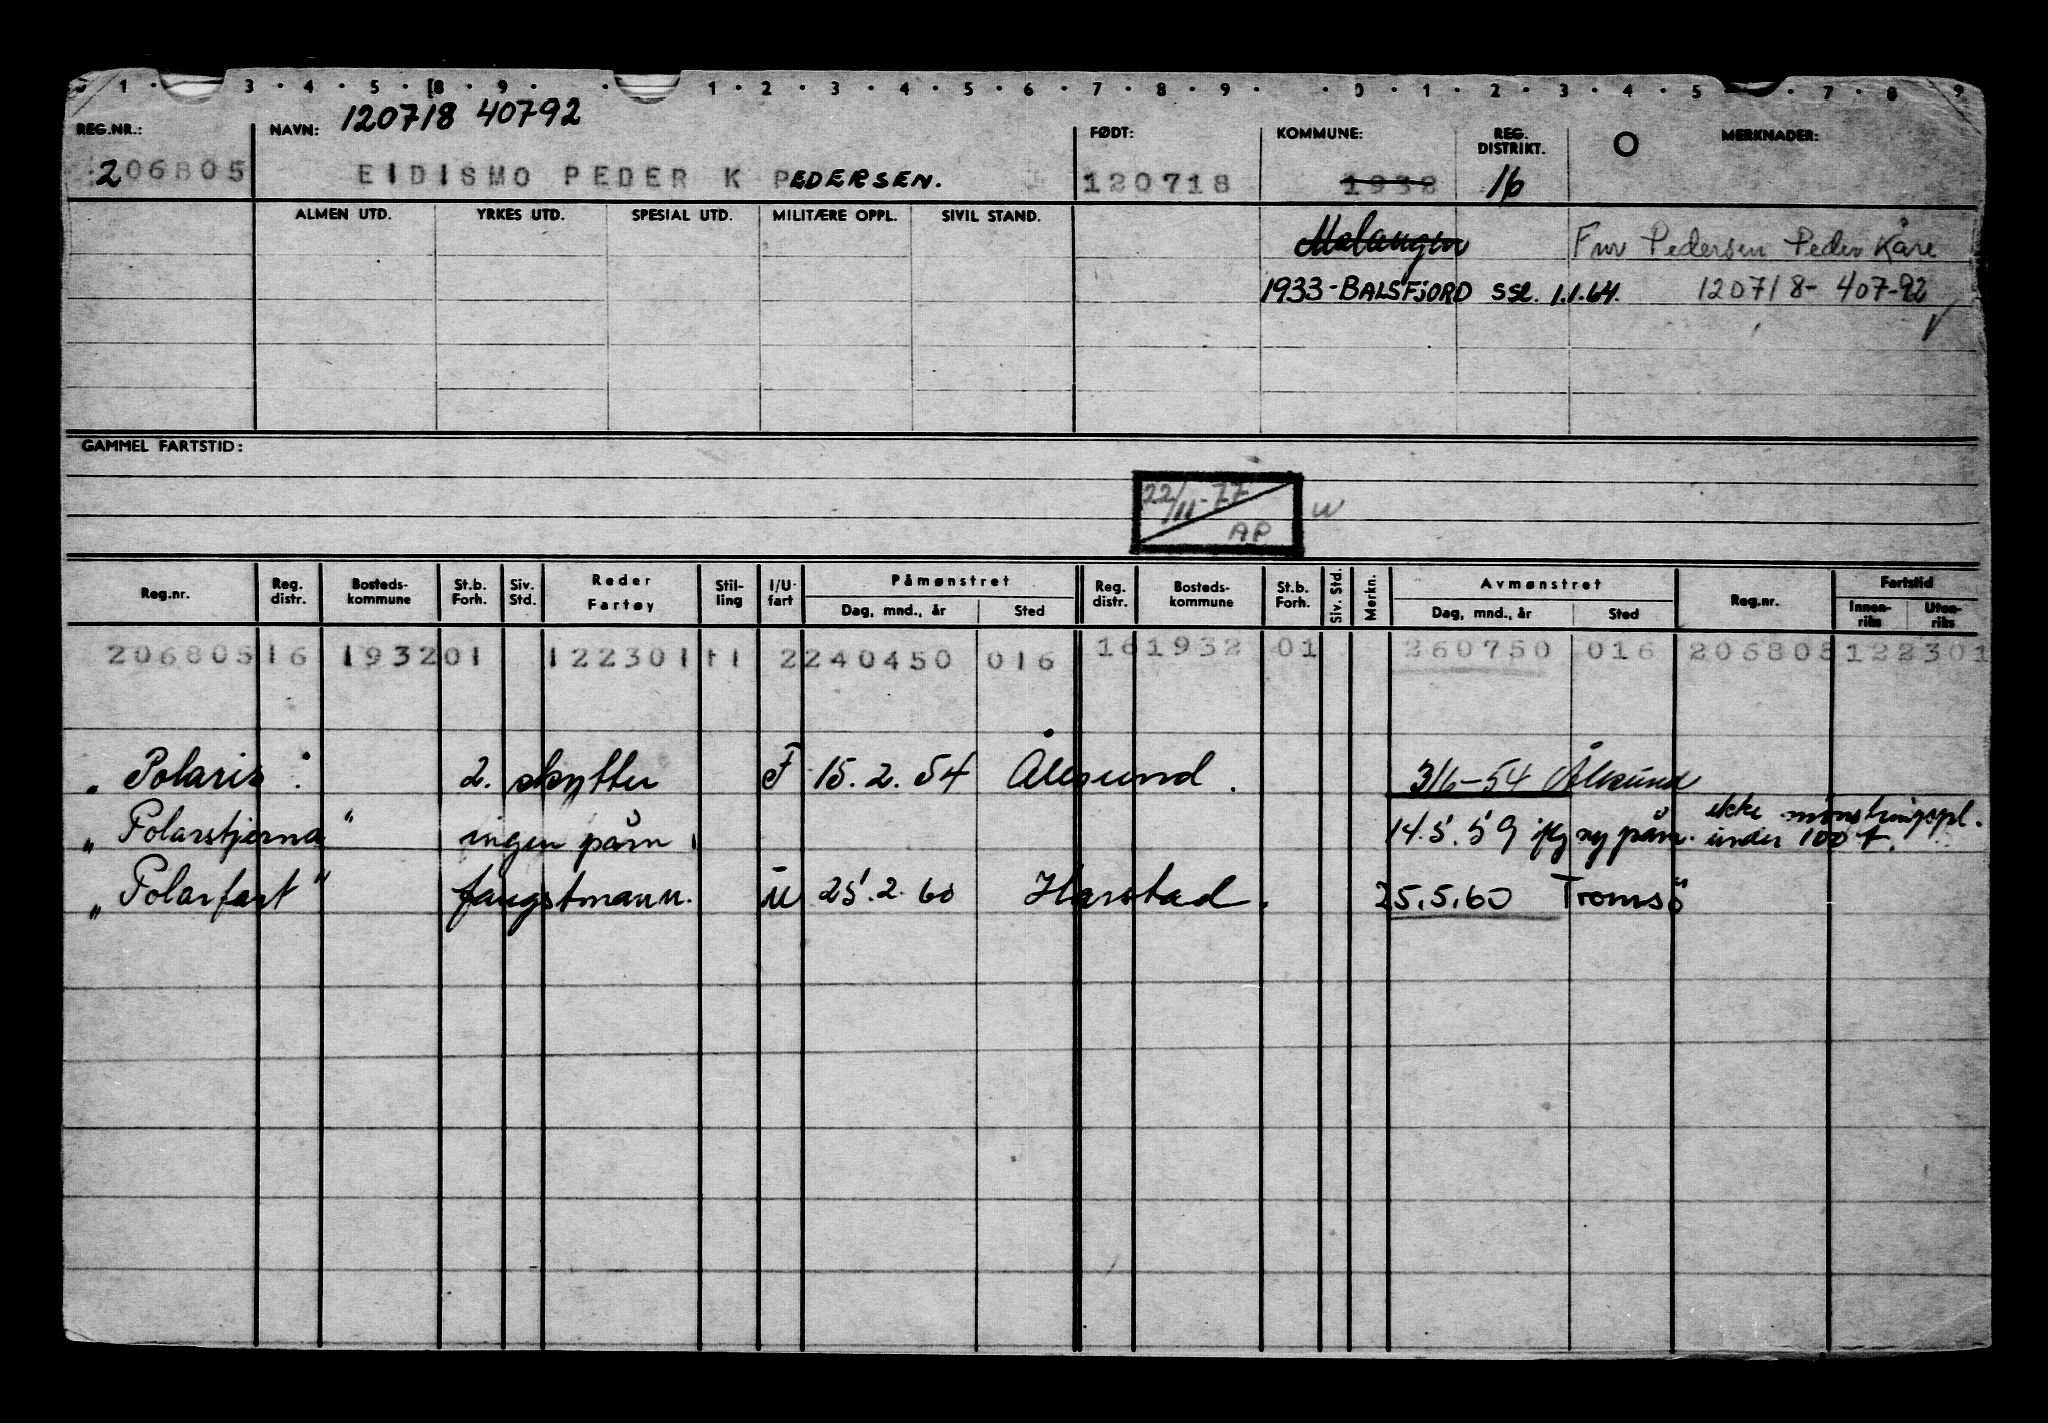 1 · 3 · 4 · 5 · 8 · 9 · · 1 · 2 · 3 · 4 · 5 · 6 · 7 · 8 · 9 · · 0 · 1 · 2 · 3 · 4 · 5 · 7 · 8 · 9
120718 40792
REG.NR.: NAVN: FØDT: KOMMUNE: REG. DISTRIKT. O MERKNADER:
206805 EIDISMO PEDER K PEDERSEN. 120718 1932 16
ALMEN UTD. YRKES UTD. SPESIAL UTD. MILITÆRE OPPL. SIVIL STAND.
Malangen Fnr Pedersen Peder Kåre
1933-BALSFJORD SSL. 1.1.64. 120718- 407-92
GAMMEL FARTSTID:
22/11-77
AP W
Reg.nr. Reg. distr. Bosteds-kommune St.b. Forh. Siv. Std. Reder Fartøy Stil-ling I/U-fart Påmønstret Reg. distr. Bosteds-kommune St.b. Forh. Siv. Std. Merkn. Avmønstret Reg.nr. Fartstid
Dag, mnd., år Sted Dag, mnd., år Sted Innen-riks Uten-riks
206805 16 1932 01 122301 11 2 240450 016 16 1932 01 260750 016 206805 122301
„Polaris" 2. skytter F 15.2.54 Ålesund. 3/6-54 Ålesund
„Polarstjerna" ingen påm. 14.5.59 iflg ny påm. ikke mønstringspl. under 100 t.
„Polarfart" fangstmann. U 25.2.60 Harstad. 25.5.60 Tromsö